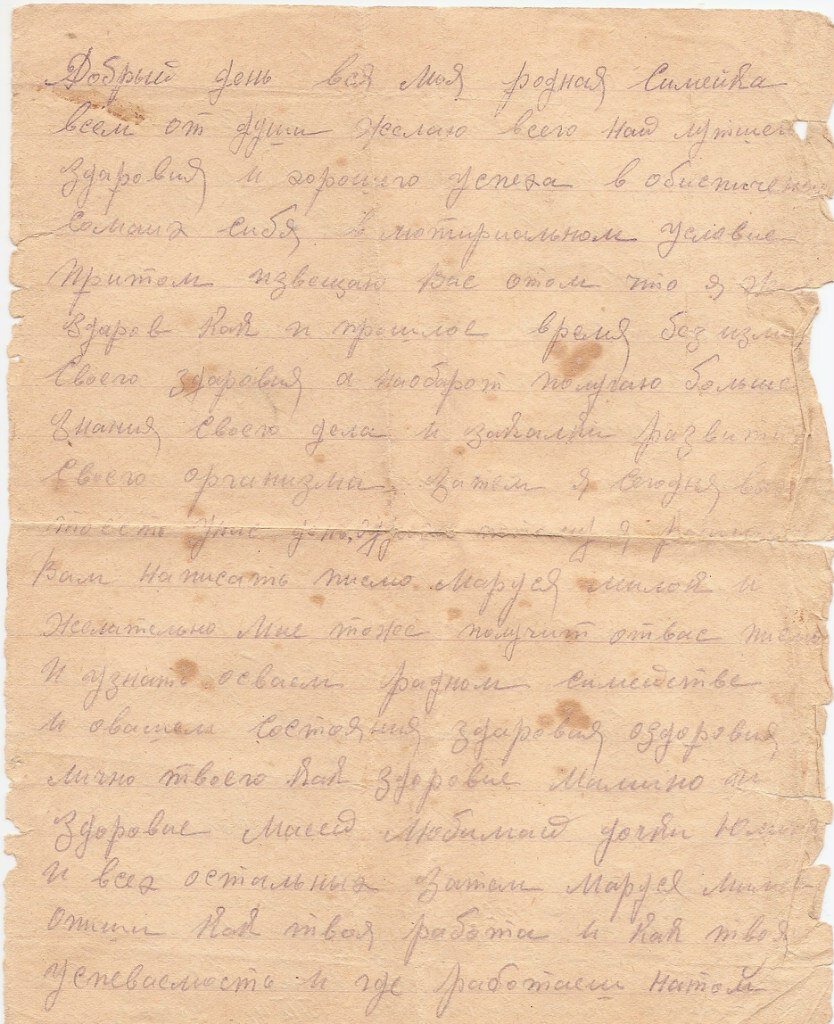 Добрый день вся моя родная симейка
всем от души желаю всего най лутшего
здаровия и хорошего успеха в
самих сибя в мотириальном условие
притом извещаю вас отом что я
здаров как и прошлое время без
своего здаровия а наоборот получаю больше
знания своего дела и закалки
своего организма затем я сегодня
вам написать писмо Маруся милой и
желательно мне тоже получит отвас
и узнать осваем радном симействе
и овашем состояния здаровия оздоровия
лично твоего как здоровие Мамино и
здоровие маей любимай дочки
и всех остальных затем Маруся
опиши как твоя работа и как твоя
успеваемость и где работаеш натом